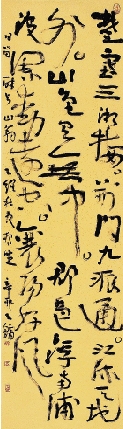 楚塞三湘接荆門九派通江流天地
外山色有無中郡邑浮前浦
波瀾動遠空襄陽好風
日留醉與山翁王維